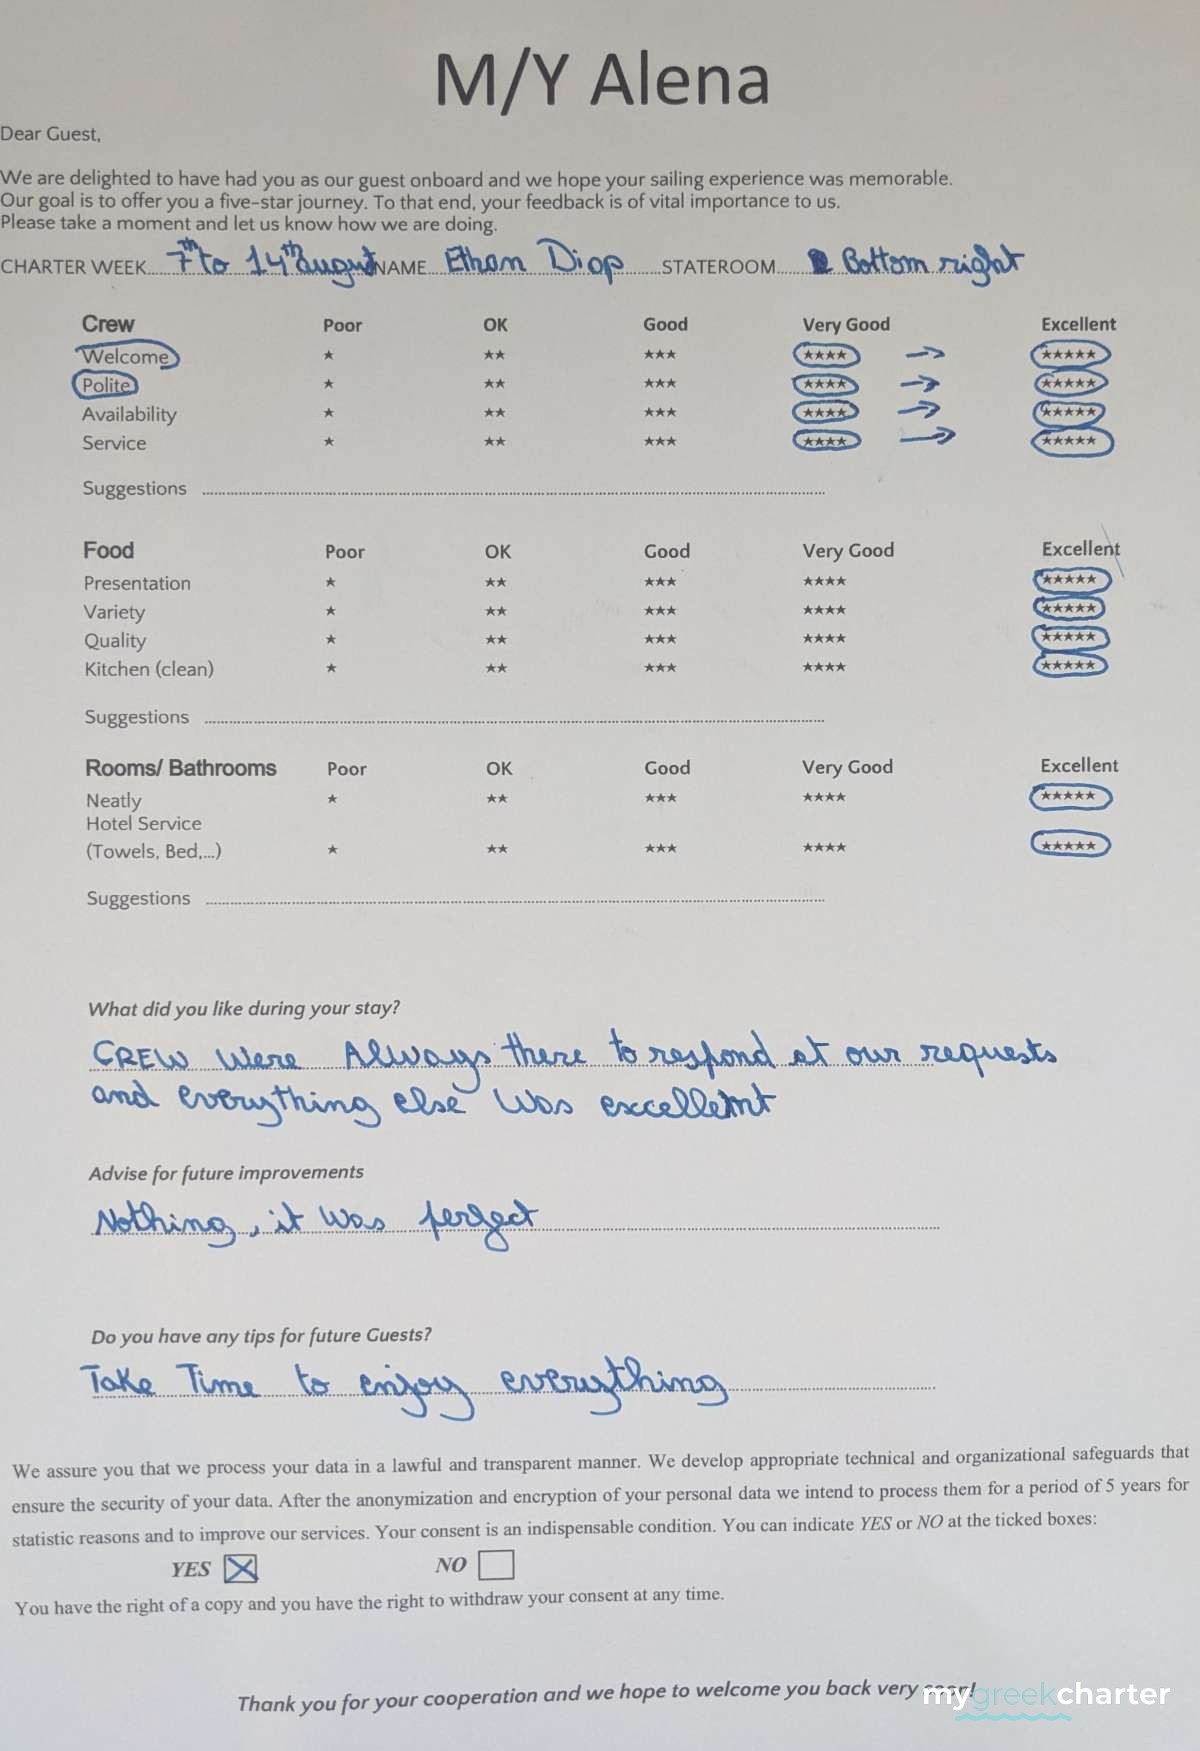 M/Y Alena
Dear Guest,
We are delighted to have had you as our guest onboard and we hope your sailing experience was memorable.
Our goal is to offer you a five-star journey. To that end, your feedback is of vital importance to us.
Please take a moment and let us know how we are doing.
CHARTER WEEK 7th to 14th august NAME Ethan Diop STATEROOM Bottom right
Crew Poor OK Good Very Good Excellent
Welcome ★ ★★ ★★★ ★★★★ → ★★★★★
Polite ★ ★★ ★★★ ★★★★ → ★★★★★
Availability ★ ★★ ★★★ ★★★★ → ★★★★★
Service ★ ★★ ★★★ ★★★★ → ★★★★★
Suggestions
Food Poor OK Good Very Good Excellent
Presentation ★ ★★ ★★★ ★★★★ ★★★★★
Variety ★ ★★ ★★★ ★★★★ ★★★★★
Quality ★ ★★ ★★★ ★★★★ ★★★★★
Kitchen (clean) ★ ★★ ★★★ ★★★★ ★★★★★
Suggestions
Rooms/ Bathrooms Poor OK Good Very Good Excellent
Neatly ★ ★★ ★★★ ★★★★ ★★★★★
Hotel Service
(Towels, Bed,...) ★ ★★ ★★★ ★★★★ ★★★★★
Suggestions
What did you like during your stay?
CREW Were Always there to respond at our requests
and everything else Was excellent
Advise for future improvements
Nothing, it Was perfect
Do you have any tips for future Guests?
Take Time to enjoy everything
We assure you that we process your data in a lawful and transparent manner. We develop appropriate technical and organizational safeguards that
ensure the security of your data. After the anonymization and encryption of your personal data we intend to process them for a period of 5 years for
statistic reasons and to improve our services. Your consent is an indispensable condition. You can indicate YES or NO at the ticked boxes:
YES NO
You have the right of a copy and you have the right to withdraw your consent at any time.
Thank you for your cooperation and we hope to welcome you back very
mygreekcharter